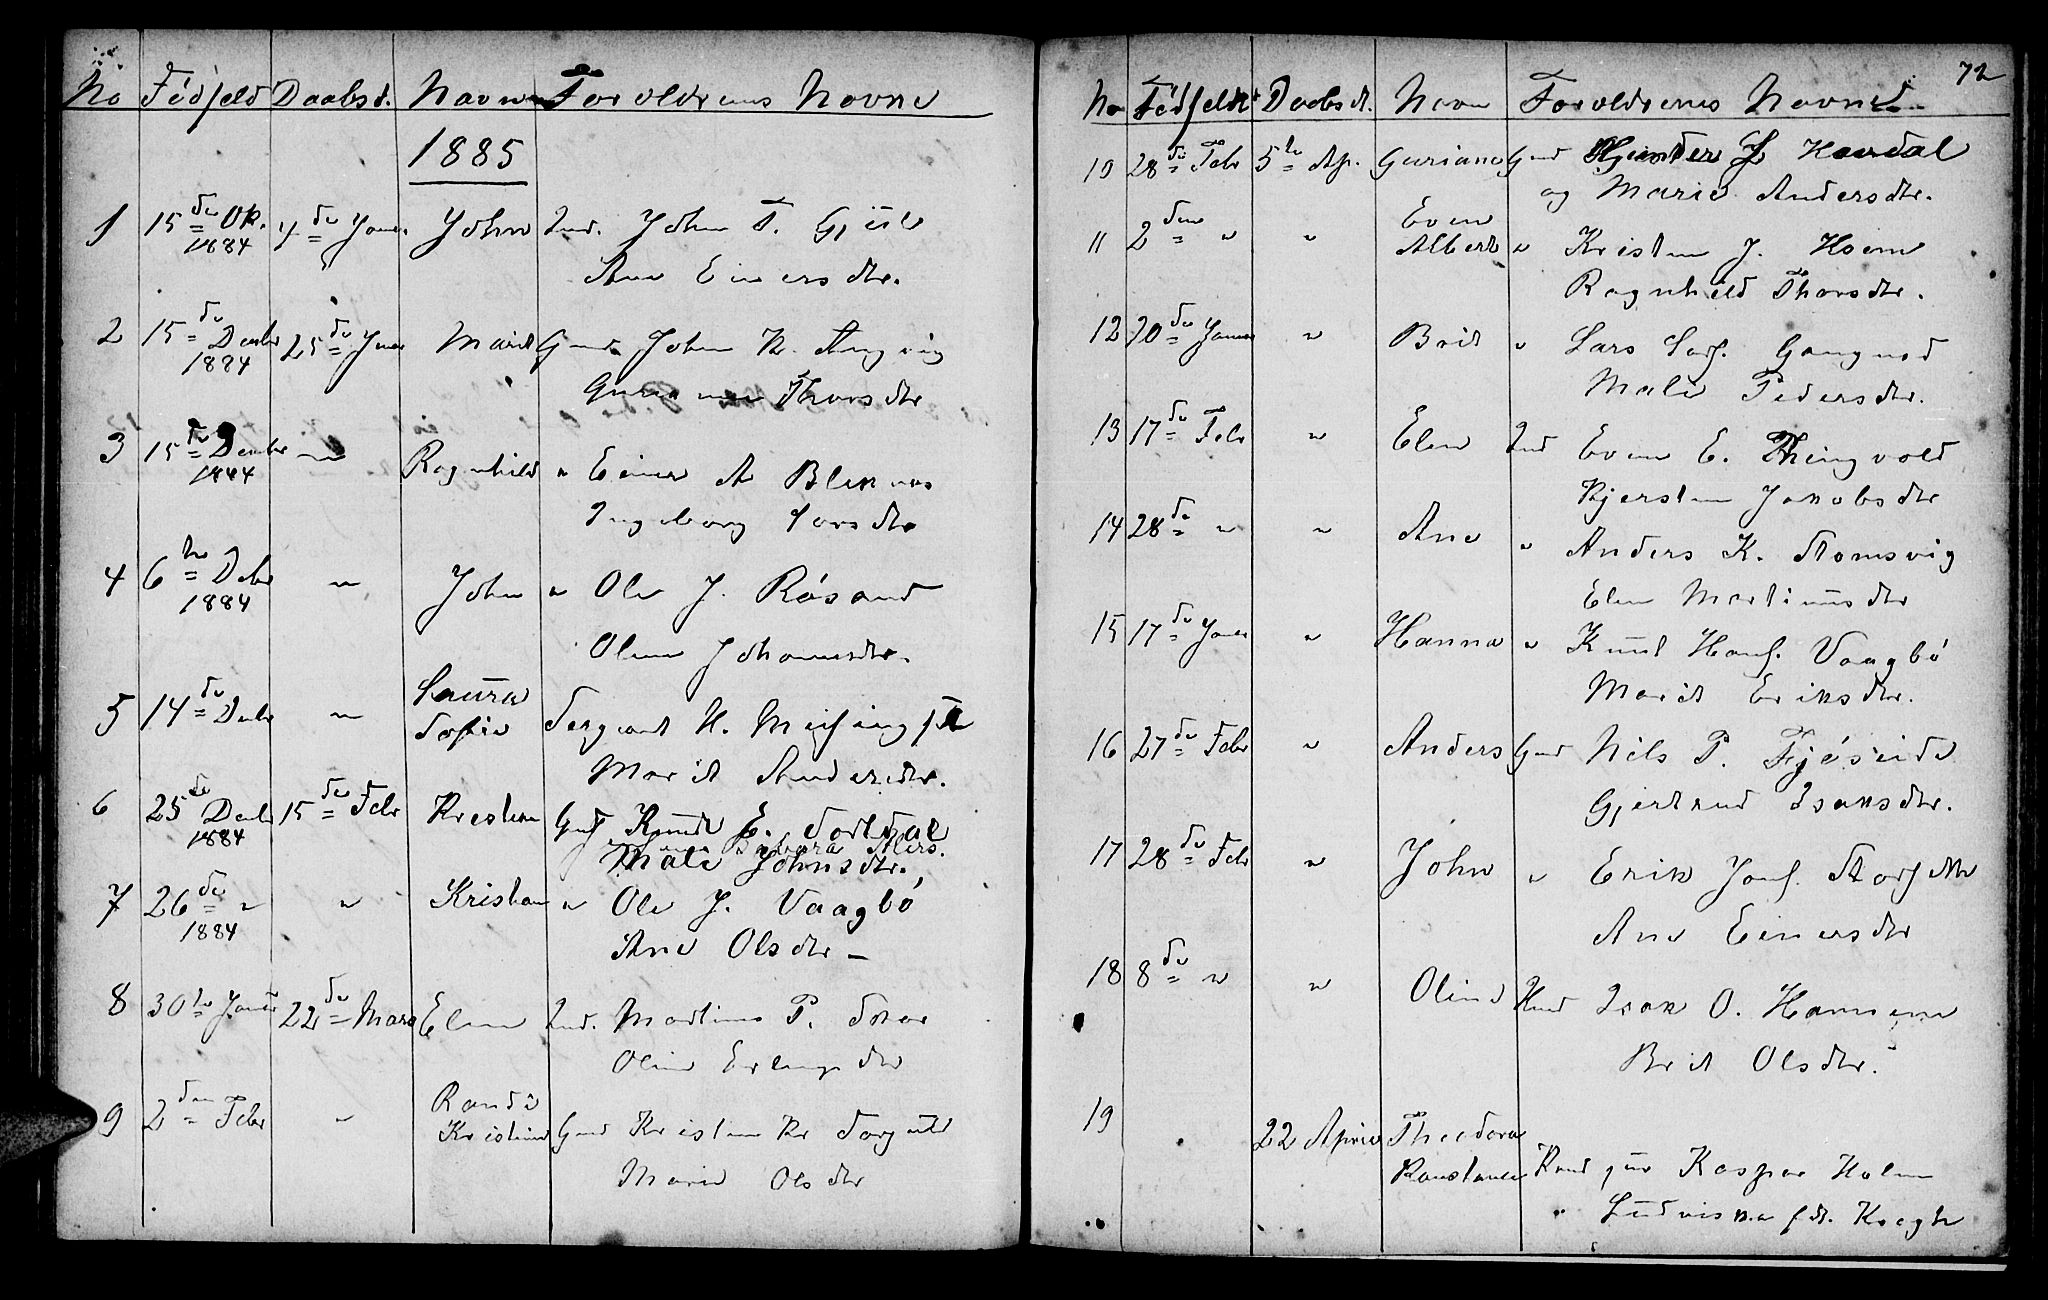 No Födseld Daabsd. Navn Forældrenes Navne
1885
1 15de Ok. 4de Janr. John Ind. John T. Gjül
1884
Ane Einersdtr.
2 15de Decbr 25de Janr Marit Gmd John K. Angvig
1884
Guriane Thorsdtr
3 15de Decbr " Ragnhild " Einer A Bleknes
1884
Ingeborg Larsdtr
4 6te Debr " John " Ole J. Rösand
1884
Oline Johannesdtr.
Laura
5 14de Decbr " Sofie Sergeant H. Meisingset
Marit Andersdtr.
6 25de Decbr 15de Febr Kristian Gmd Knudt E. Sortdal
1884
Male Johnsdtr.
7 26de " " Kristian " Ole J. Vaagbö
1884
Ane Olsdtr –
8 30te Janr 22de Mars Elen Ind. Martinus P. Skar
Oline Erlingsdtr
Randi
9 2den Febr " Kristine Gmd Kristen Kr Torg
Marie Olsdtr
72
No Födseld Daabsd. Navn Forældrenes Navne
10 28de Febr 5te Ap. Guriane Gmd J Hardal
og Marie Andersdtr.
Even
11 2den " " Albert " Kristen J. Hoem
Ragnhild Thorsdtr.
12 20de Janr " Brit " Lars Lars. Gangnød
Male Pedersdtr.
13 17de Febr " Elen Ind Even E. Thingvold
Kjersten Jakobsdtr
14 28de " " Ane " Anders K. Stomsvig
Elen Martinusdtr
15 17de Janr " Hanna " Knut Hans. Vaagbö
Marit Eriksdtr.
16 27de Febr " Anders Gmd Nils P. Fjöseide
Gjertrud Isaksdtr.
17 28de Febr " John " Erik Jons. Storslth
Ane Einersdtr
18 8de " " Oline Hmd Isak O. Hansem
Brit Olsdtr.
19
22 April Theodora
Konstance Kand jur Kaspar Holm
" Ludviska fdt. Kragh